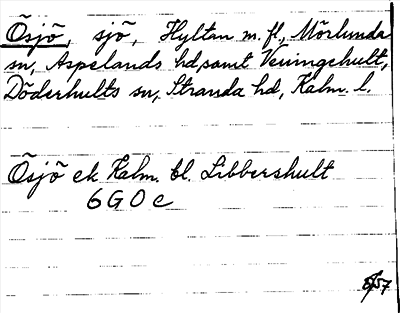 Ösjö, sjö, Hyltan m. fl., Mörlunda
sn, Aspelands hd, samt Veningehult,
Döderhults sn, Stranda hd, Kalm. l.
Ösjö ek Kalm. bl. Libbershult
6 G O c